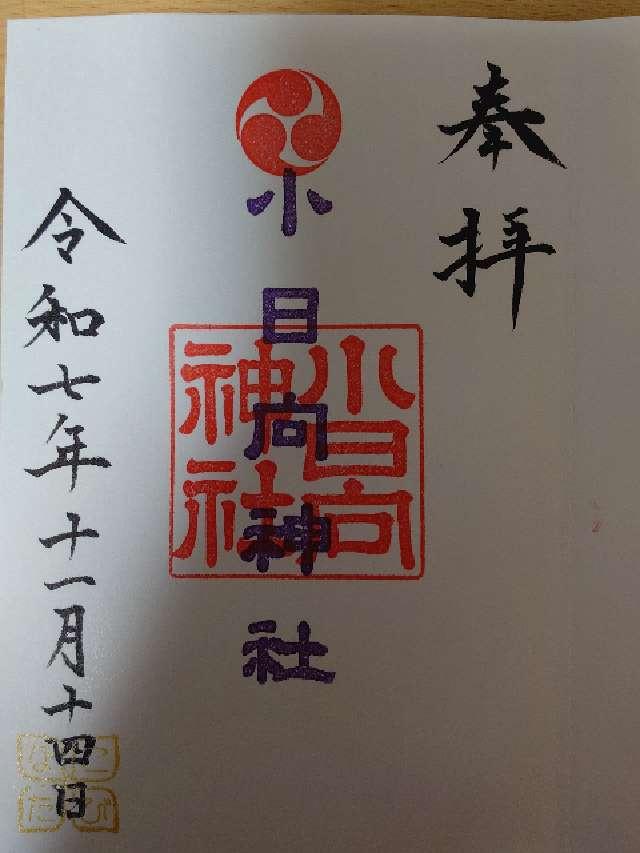 奉拝
小日向神社
小日向
神社
令和七年十一月十四日